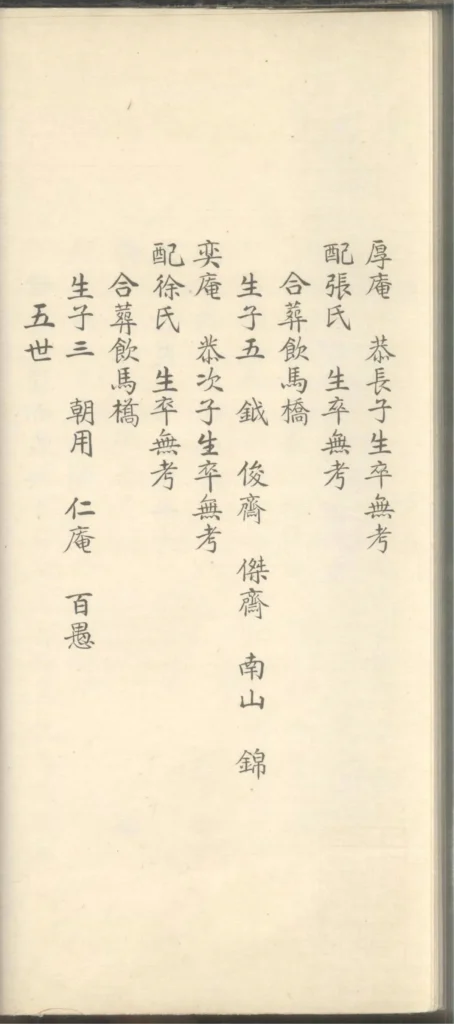 厚庵 恭長子生卒無考
配張氏 生卒無考
合葬飲馬橋
生子五 鉞 俊齋 傑齋 南山 錦
奕庵 恭次子生卒無考
配徐氏 生卒無考
合葬飲馬橋
生子三 朝用 仁庵 百愚
五世